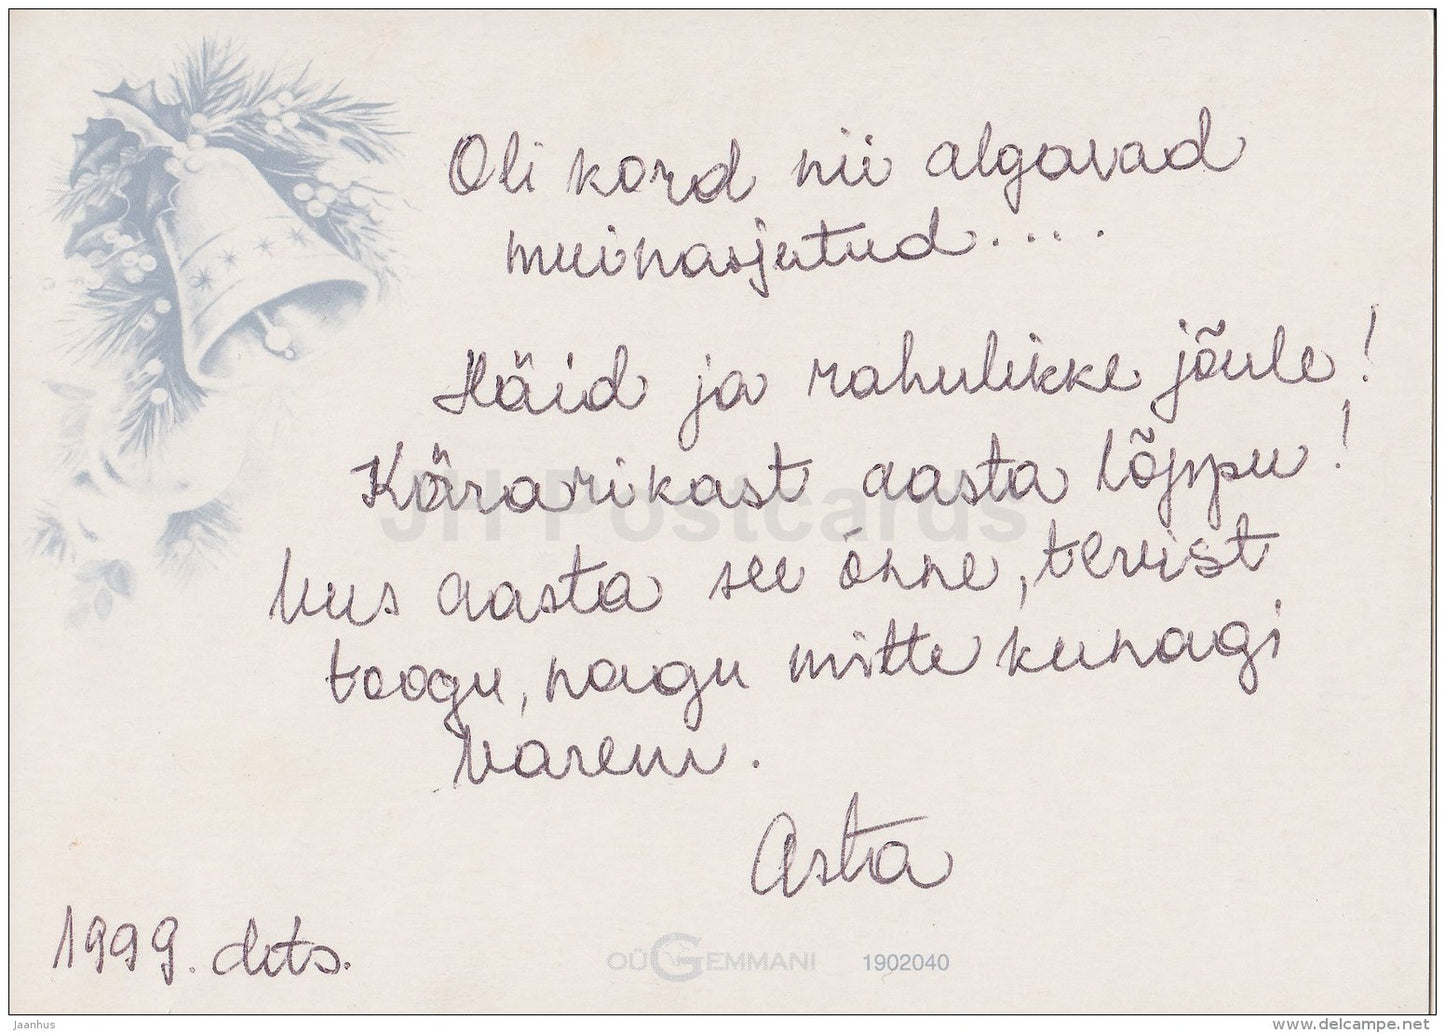 Oli kord nii algavad
muinasjutud....
Häid ja rahulikke jõule!
Kärarikast aasta lõppu!
Uus aasta see õnne, tervist
toogu, nagu mitte kunagi
varem.
Asta
1999. dets.
OÜ GEMMANI 1902040
JH Postcards
jaanhus
www.delcampe.net